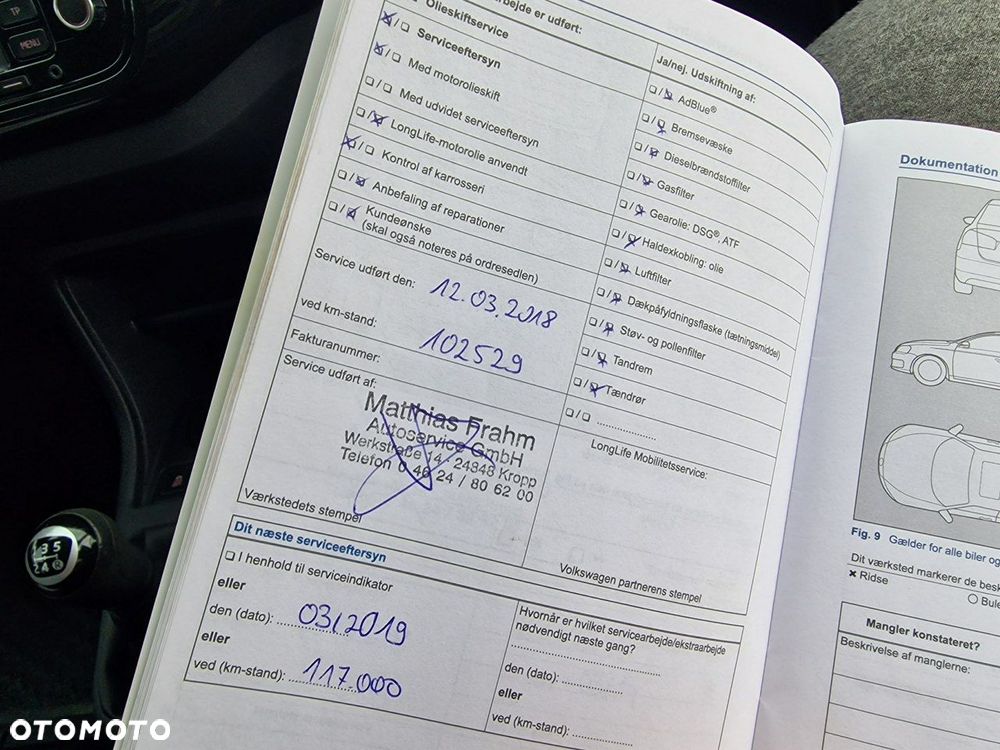 TP
MENU
arbejde er udført:
Olieskiftservice
Serviceeftersyn
Med motorolieskift
Med udvidet serviceeftersyn
LongLife-motorolie anvendt
Kontrol af karrosseri
Anbefaling af reparationer
Kundeønske
(skal også noteres på ordresedlen)
Service udført den: 12.03.2018
ved km-stand: 102529
Fakturanummer:
Service udført af:
Matthias Frahm
Autoservice GmbH
Werkstraße 14 · 24848 Kropp
Telefon 0 46 24 / 80 62 00
Værkstedets stempel
Ja/nej. Udskiftning af:
AdBlue®
Bremsevæske
Dieselbrændstoffilter
Gasfilter
Gearolie: DSG®, ATF
Haldexkobling: olie
Luftfilter
Dækpåfyldningsflaske (tætningsmiddel)
Støv- og pollenfilter
Tandrem
Tændrør
LongLife Mobilitetsservice:
Volkswagen partnerens stempel
Dit næste serviceeftersyn
I henhold til serviceindikator
eller
den (dato): 03/2019
eller
ved (km-stand): 117.000
Hvornår er hvilket servicearbejde/ekstraarbejde
nødvendigt næste gang?
den (dato):
eller
ved (km-stand):
Dokumentation
Fig. 9 Gælder for alle biler og
Dit værksted markerer de besk
Ridse
Bule
Mangler konstateret?
Beskrivelse af manglerne:
3 5
2 4 R
OTOMOTO